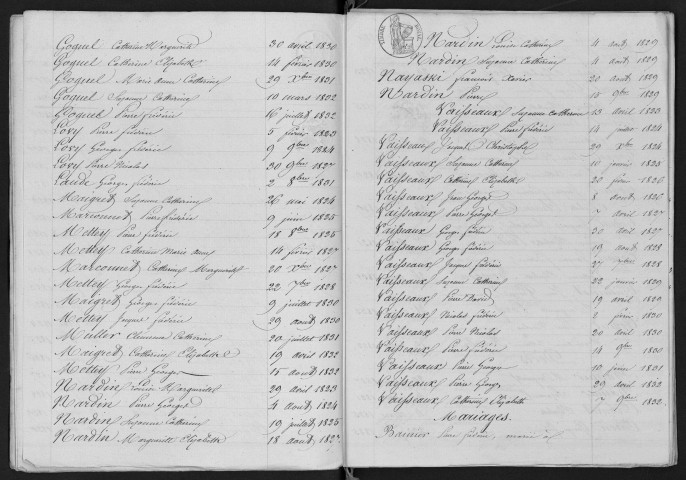 Goguel Catherine Margueritte 30 avril 1830
Goguel Catherine Elizabeth 14 février 1830
Goguel Marie Anne Catherine 29 Xbre 1831
Goguel Suzanne Catherine 10 mars 1832
Goguel Pierre Frédéric 16 juillet 1832
Lovy Pierre Frédéric 5 février 1823
Lovy Georges Frédéric 9 9bre 1824
Lovy Pierre Nicolas 30 9bre 1827
Laude George Frédéric 2 8bre 1831
Maigret Suzanne Catherine 26 mai 1824
Marconnet Pierre Frédéric 9 juin 1825
Mettey Pierre Frédéric 18 8bre 1825
Mettey Catherine Marie Anne 14 février 1827
Marconnet Catherine Margueritte 20 Xbre 1827
Mettey George Frédéric 22 7bre 1828
Maigret George Frédéric 9 juillet 1830
Mettey Jacques Frédéric 29 août 1830
Muller Clemence Catherine 20 juillet 1831
Maigret Catherine Elizabeth 19 avril 1832
Mettey Pierre George 15 août 1832
Nardin Louise Margueritte 29 avril 1823
Nardin Pierre George 4 août 1824
Nardin Suzanne Catherine 19 juillet 1825
Nardin Margueritte Elizabeth 18 août 1827
Nardin Louise Catherine 4 août 1829
Nardin Suzanne Catherine 4 août 1829
Nagaski François Xavier 20 août 1829
Nardin Pierre 15 9bre 1829
Vaisseaux Suzanne Catherine 13 avril 1823
Vaisseaux Pierre Frédéric 14 juillet 1824
Vaisseaux Jacques Christophe 29 Xbre 1824
Vaisseaux Suzanne Catherine 10 janvier 1825
Vaisseaux Catherine Elizabeth 20 février 1826
Vaisseaux Jean George 8 août 1826
Vaisseaux Pierre George 7 avril 1827
Vaisseaux George Frédéric 30 avril 1827
Vaisseaux George Frédéric 19 août 1828
Vaisseaux Jacques Frédéric 27 7bre 1828
Vaisseaux Suzanne Catherine 22 janvier 1829
Vaisseaux Pierre David 19 avril 1829
Vaisseaux Nicolas Frédéric 2 février 1830
Vaisseaux Pierre Nicolas 20 avril 1830
Vaisseaux Pierre Frédéric 14 9bre 1830
Vaisseaux Pierre George 10 février 1831
Vaisseaux Pierre George 29 avril 1832
Vaisseaux Catherine Elizabeth 7 9bre 1832
Mariages.
Pierre Frédéric, marié à